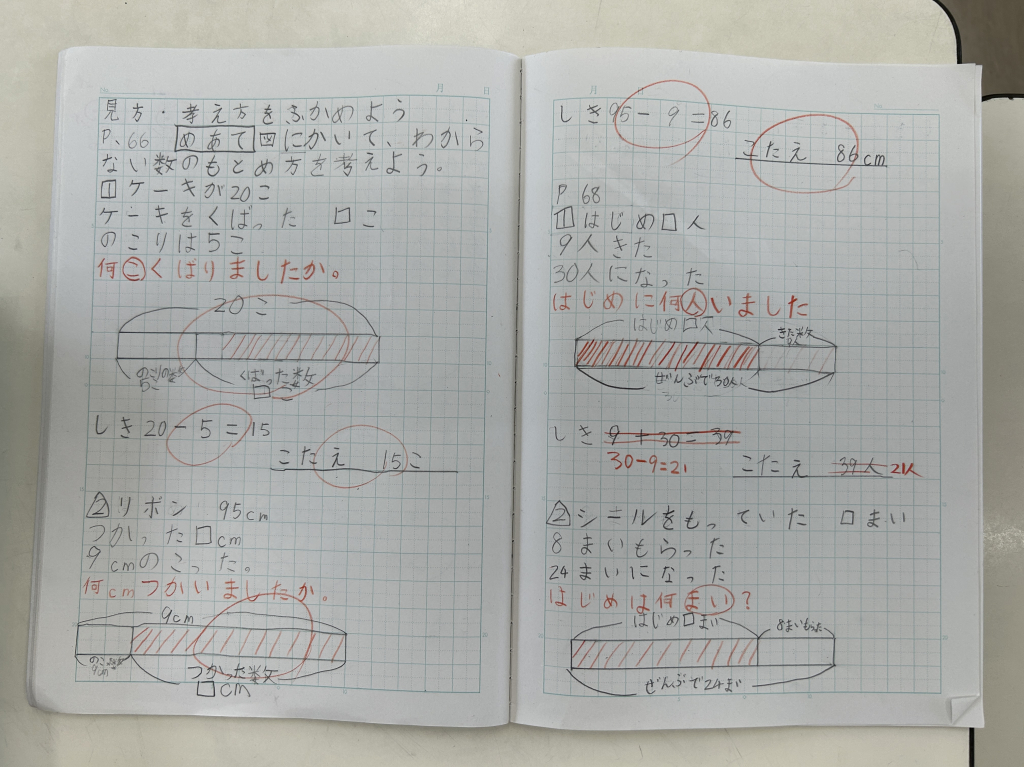 見方・考え方をふかめよう
P.66 めあて 図にかいて、わから
ない数のもとめ方を考えよう。
1 ケーキが20こ
ケーキをくばった □こ
のこりは5こ
何こくばりましたか。
20こ
のこりの数
5こ
くばった数
□こ
しき 20-5=15
こたえ 15こ
2 リボン 95cm
つかった□cm
9cmのこった。
何cmつかいましたか。
9cm
9cm
つかった数
□cm
月 日
しき 95-9=86
こたえ 86cm
P 68
1 はじめ□人
9人きた
30人になった
はじめに何人いました
はじめ□人
きた数
9人
ぜんぶで30人
しき 9+30=39
30-9=21
こたえ 39人 21人
2 シールをもっていた □まい
8まいもらった
24まいになった
はじめは何まい?
はじめ□まい
8まいもらった
ぜんぶで24まい